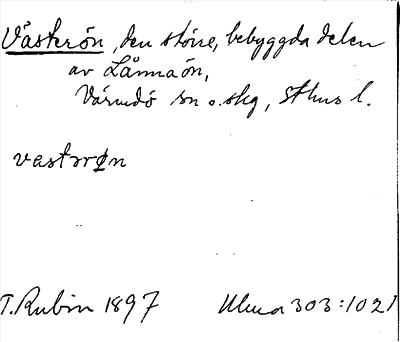 Västerön, den större, bebyggda delen
av Lännaön,
Värmdö sn o. skg, Sthms l.
vastrrøn
T. Rubin 1897 Ulma 303:1021